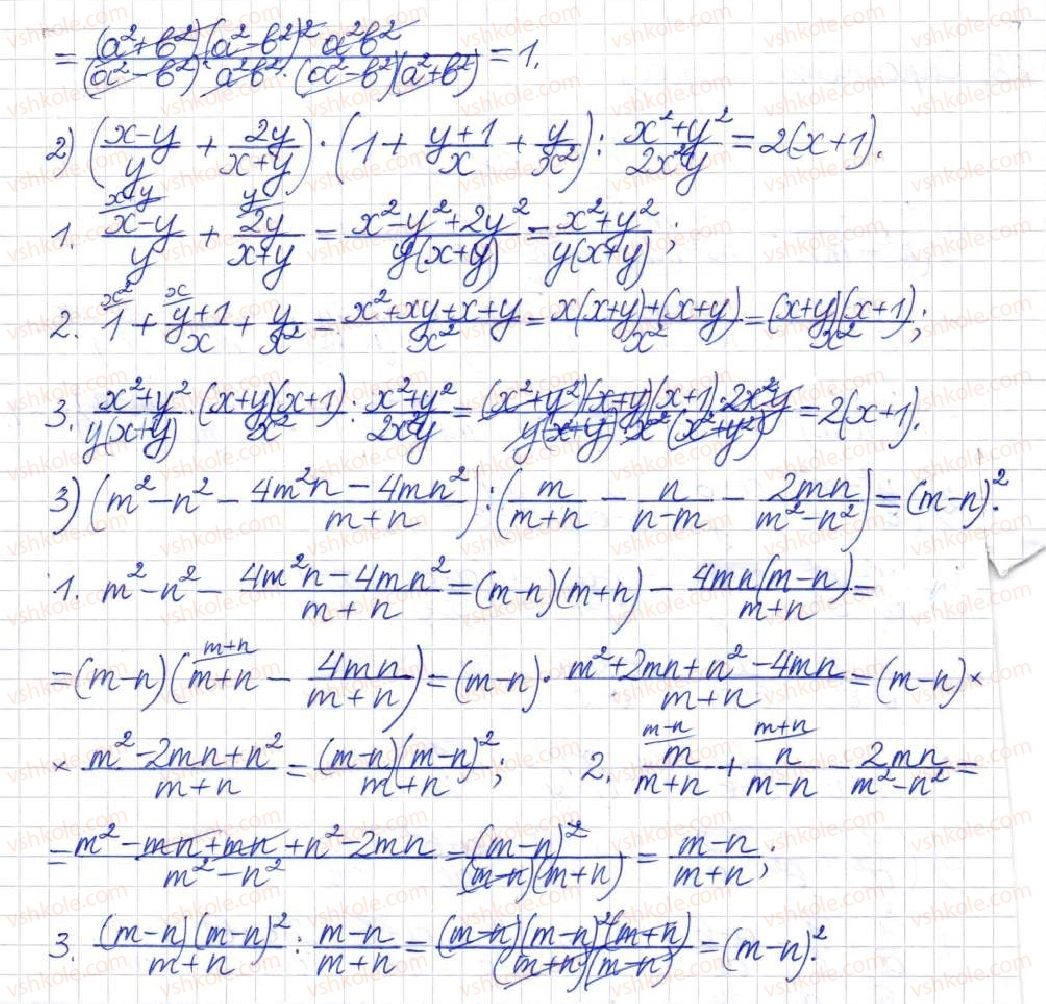 = (a²+b²)(a²-b²)² a²b² / (a²-b²)·a²b²·(a²-b²)(a²+b²) = 1.
2) ((x-y)/y + 2y/(x+y)) · (1 + (y+1)/x + y/x²) : (x²+y²)/(2x²y) = 2(x+1).
1. (x-y)/y + 2y/(x+y) = (x²-y²+2y²)/(y(x+y)) = (x²+y²)/(y(x+y));
2. 1 + (y+1)/x + y/x² = (x²+xy+x+y)/x² = (x(x+y)+(x+y))/x² = (x+y)(x+1)/x²;
3. (x²+y²)/(y(x+y)) · (x+y)(x+1)/x² : (x²+y²)/(2x²y) = (x²+y²)(x+y)(x+1)·2x²y / y(x+y)·x²(x²+y²) = 2(x+1).
3) (m²-n² - (4m²n-4mn²)/(m+n)) : (m/(m+n) - n/(n-m) - 2mn/(m²-n²)) = (m-n)².
1. m²-n² - (4m²n-4mn²)/(m+n) = (m-n)(m+n) - 4mn(m-n)/(m+n) =
= (m-n)(m+n - 4mn/(m+n)) = (m-n)· (m²+2mn+n²-4mn)/(m+n) = (m-n)×
× (m²-2mn+n²)/(m+n) = (m-n)(m-n)²/(m+n); 2. m/(m+n) + n/(m-n) - 2mn/(m²-n²) =
= (m²-mn+mn+n²-2mn)/(m²-n²) = (m-n)²/((m-n)(m+n)) = (m-n)/(m+n);
3. (m-n)(m-n)²/(m+n) : (m-n)/(m+n) = (m-n)(m-n)²(m+n)/((m+n)(m-n)) = (m-n)².